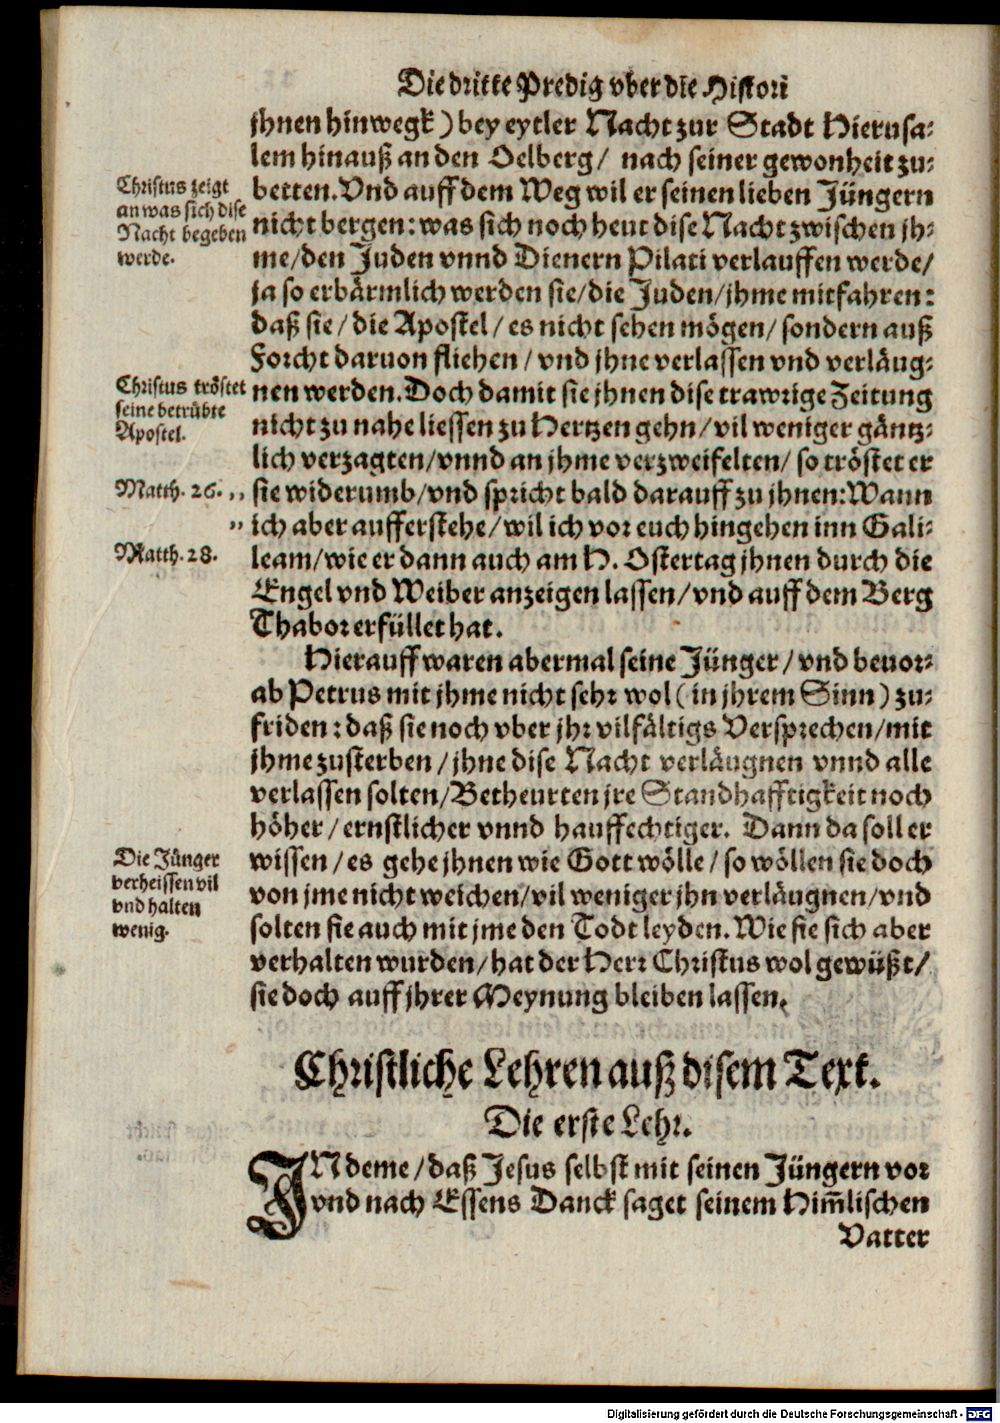 Die dritte Predig vber die Histori
jhnen hinwegk) bey eytler Nacht zur Stadt Hierusa⸗
lem hinauß an den Oelberg/ nach seiner gewonheit zu⸗
Christus zeigt
an was sich dise
Nacht begeben
werde.
betten. Vnd auff dem Weg wil er seinen lieben Jüngern
nicht bergen: was sich noch heut dise Nacht zwischen jh⸗
me/den Juden vnnd Dienern Pilati verlauffen werde/
ja so erbärmlich werden sie/die Juden/jhme mitfahren:
daß sie/die Apostel/es nicht sehen mögen/sondern auß
Forcht daruon fliehen/vnd jhne verlassen vnd verläug⸗
Christus tröstet
seine betrübte
Apostel.
nen werden. Doch damit sie jhnen dise trawrige Zeitung
nicht zu nahe liessen zu Hertzen gehn/vil weniger gäntz⸗
lich verzagten/vnnd an jhme verzweifelten/ so tröstet er
Matth. 26. „
sie widerumb/vnd spricht bald darauff zu jhnen: Wann
„ ich aber aufferstehe/wil ich vor euch hingehen inn Gali⸗
Matth. 28.
leam/wie er dann auch am H. Ostertag jhnen durch die
Engel vnd Weiber anzeigen lassen/vnd auff dem Berg
Thabor erfüllet hat.
Hierauff waren abermal seine Jünger/vnd beuor⸗
ab Petrus mit jhme nicht sehr wol (in jhrem Sinn) zu⸗
friden: daß sie noch vber jhr vilfältigs Versprechen/mit
jhme zusterben/jhne dise Nacht verläugnen vnnd alle
verlassen solten/Betheurten jre Standhafftigkeit noch
höher/ernstlicher vnnd hauffechtiger. Dann da soll er
Die Jünger
verheissen vil
vnd halten
wenig.
wissen/es gehe jhnen wie Gott wölle/so wöllen sie doch
von jme nicht weichen/vil weniger jhn verläugnen/vnd
solten sie auch mit jme den Todt leyden. Wie sie sich aber
verhalten wurden/hat der Herr Christus wol gewüßt/
sie doch auff jhrer Meynung bleiben lassen.
Christliche Lehren auß disem Text.
Die erste Lehr.
INdeme/daß Jesus selbst mit seinen Jüngern vor
vnd nach Essens Danck saget seinem Him̃lischen
Vatter
Digitalisierung gefördert durch die Deutsche Forschungsgemeinschaft - DFG